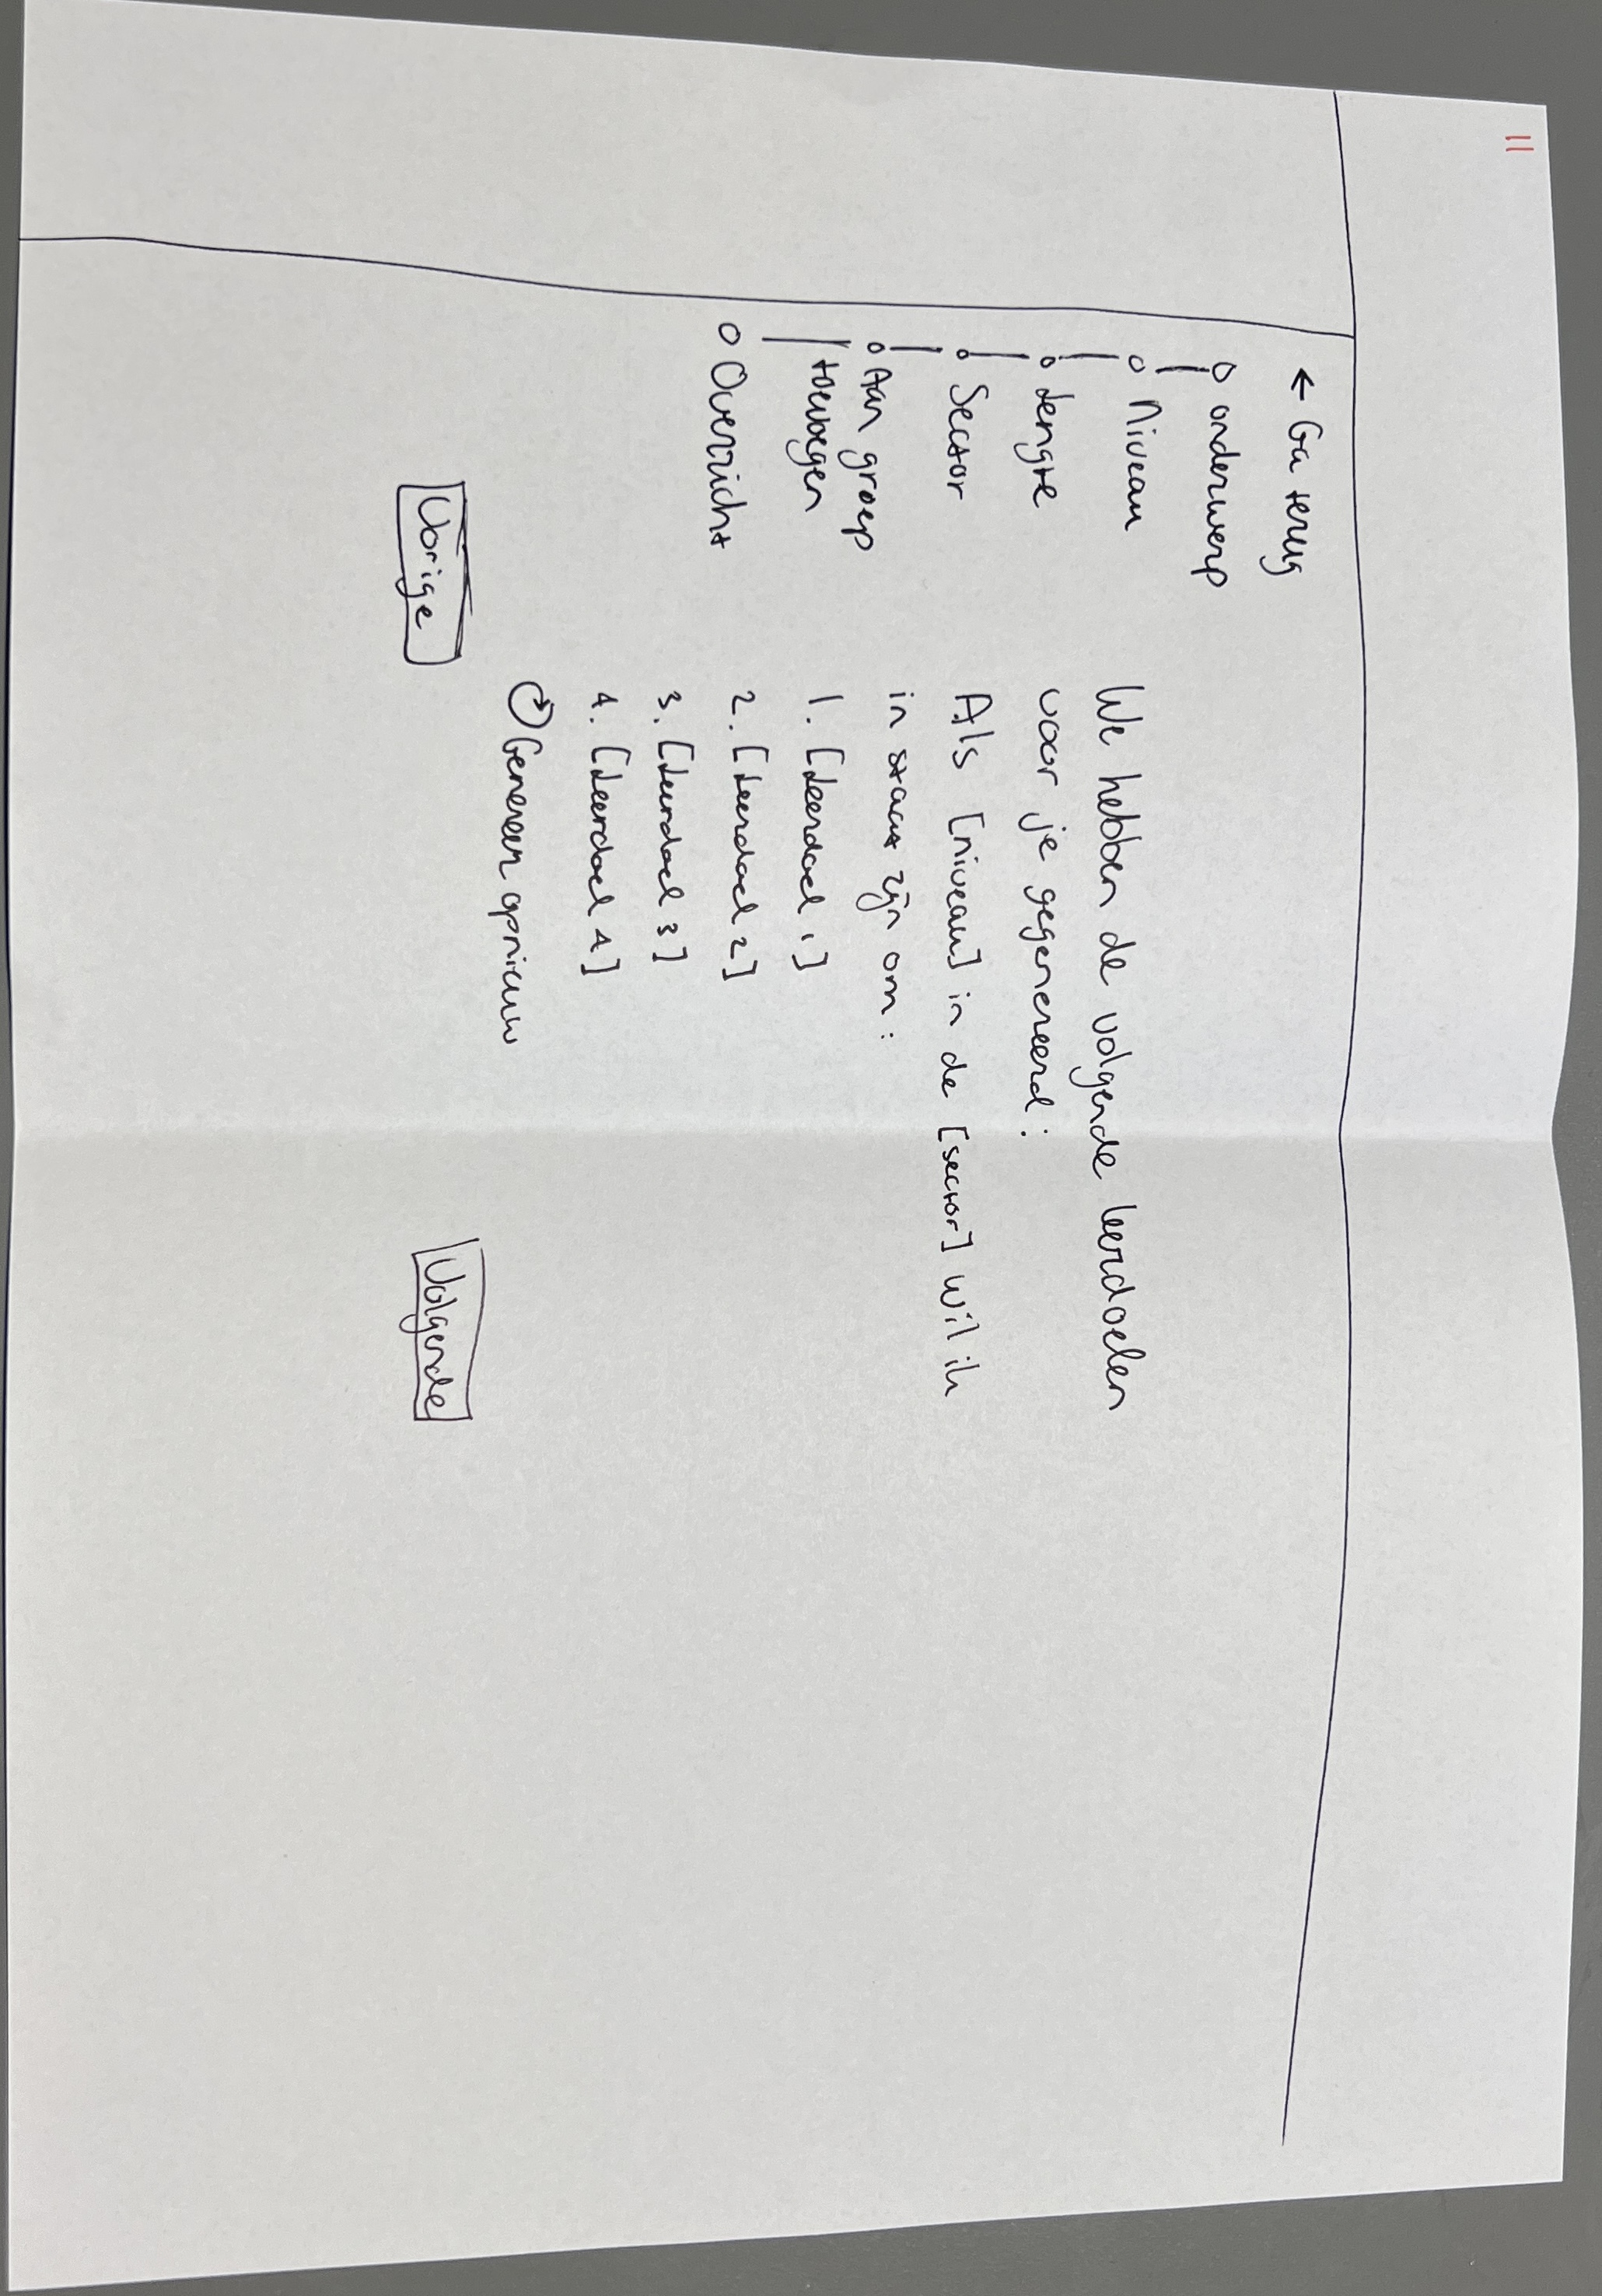 11
← Ga terug
onderwerp
Niveau
Lengte
Sector
Aan groep
toevoegen
Overzicht
We hebben de volgende leerdoelen
voor je gegenereerd:
Als [niveau] in de [sector] wil ik
in staat zijn om:
1. [Leerdoel 1]
2. [Leerdoel 2]
3. [Leerdoel 3]
4. [Leerdoel 4]
Genereer opnieuw
Vorige
Volgende